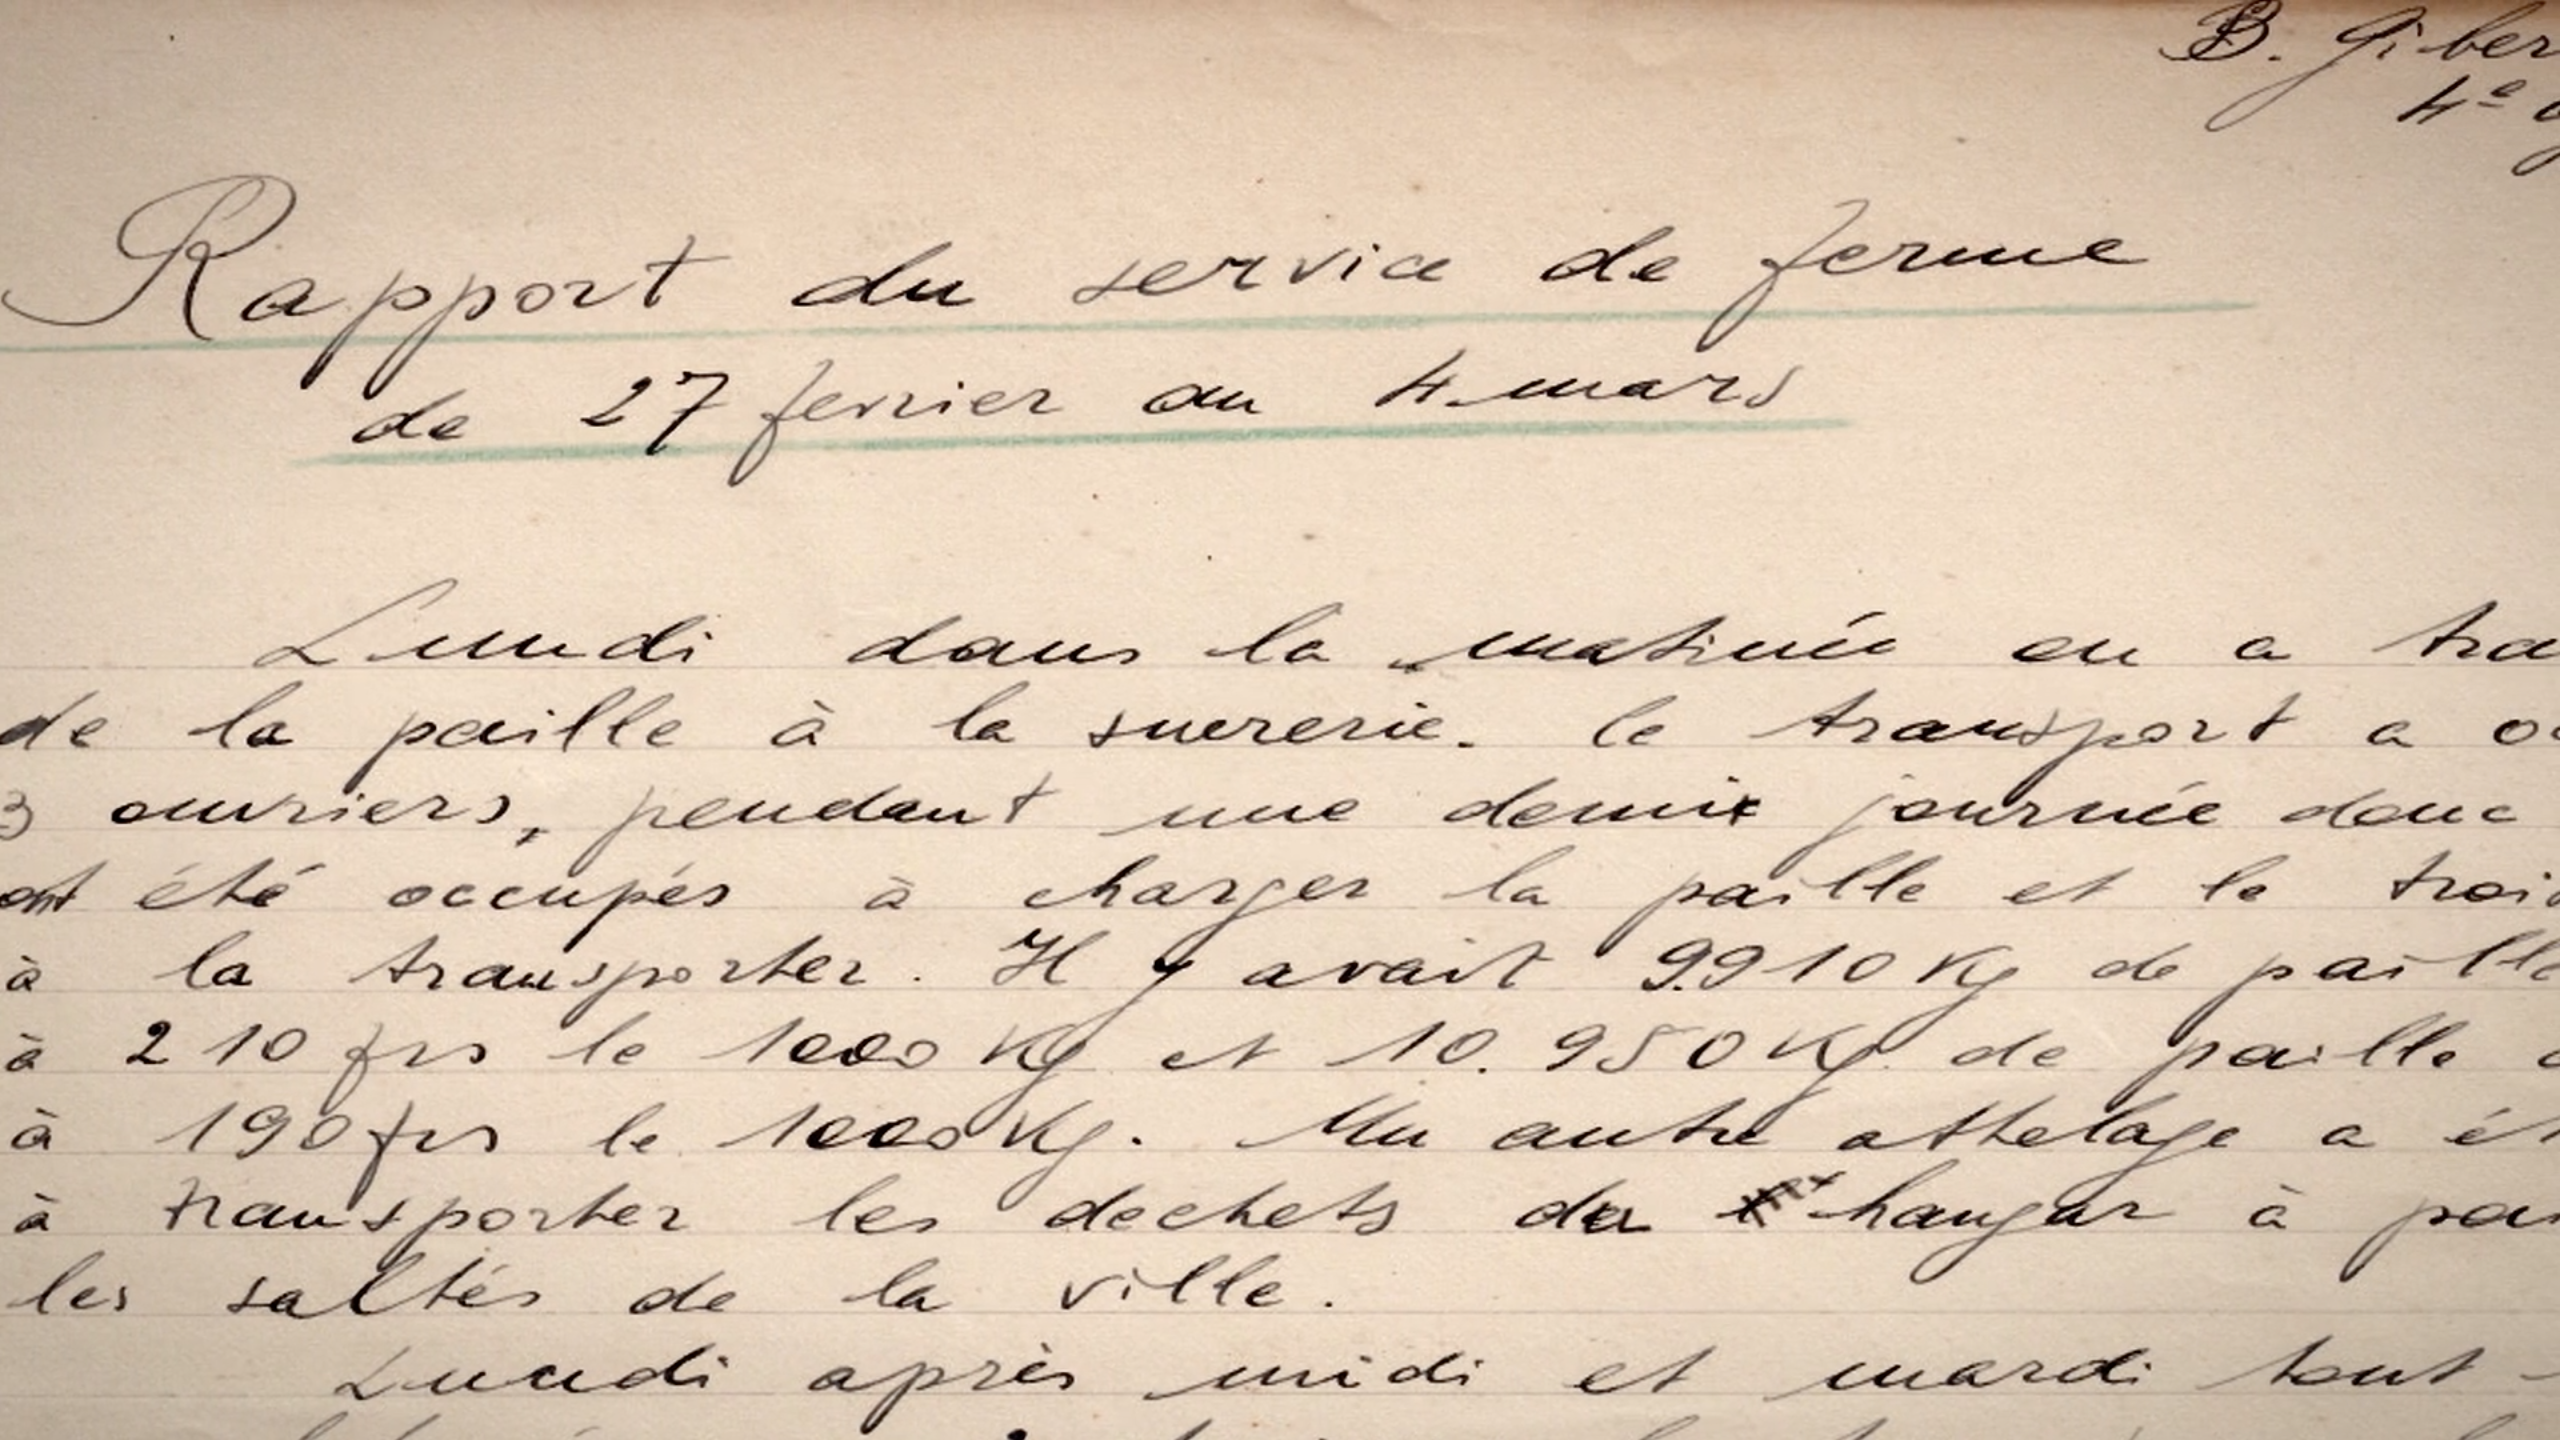 B. Giber
4e g
Rapport du service de ferme
de 27 fevrier au 4 mars
Lundi dans la matinée on a tra
de la paille à la sucrerie. le transport a oc
3 ouvriers, pendant une demie journée donc
ont été occupés à charger la paille et le trois
à la transporter. Il y avait 9.910 Kg de paille
à 210 frs le 1000 Kg et 10.950 Kg de paille
à 190 frs le 1000 Kg. Un autre attelage a ét
à transporter les dechets du hangar à pa
les saltés de la ville.
Lundi après midi et mardi tout